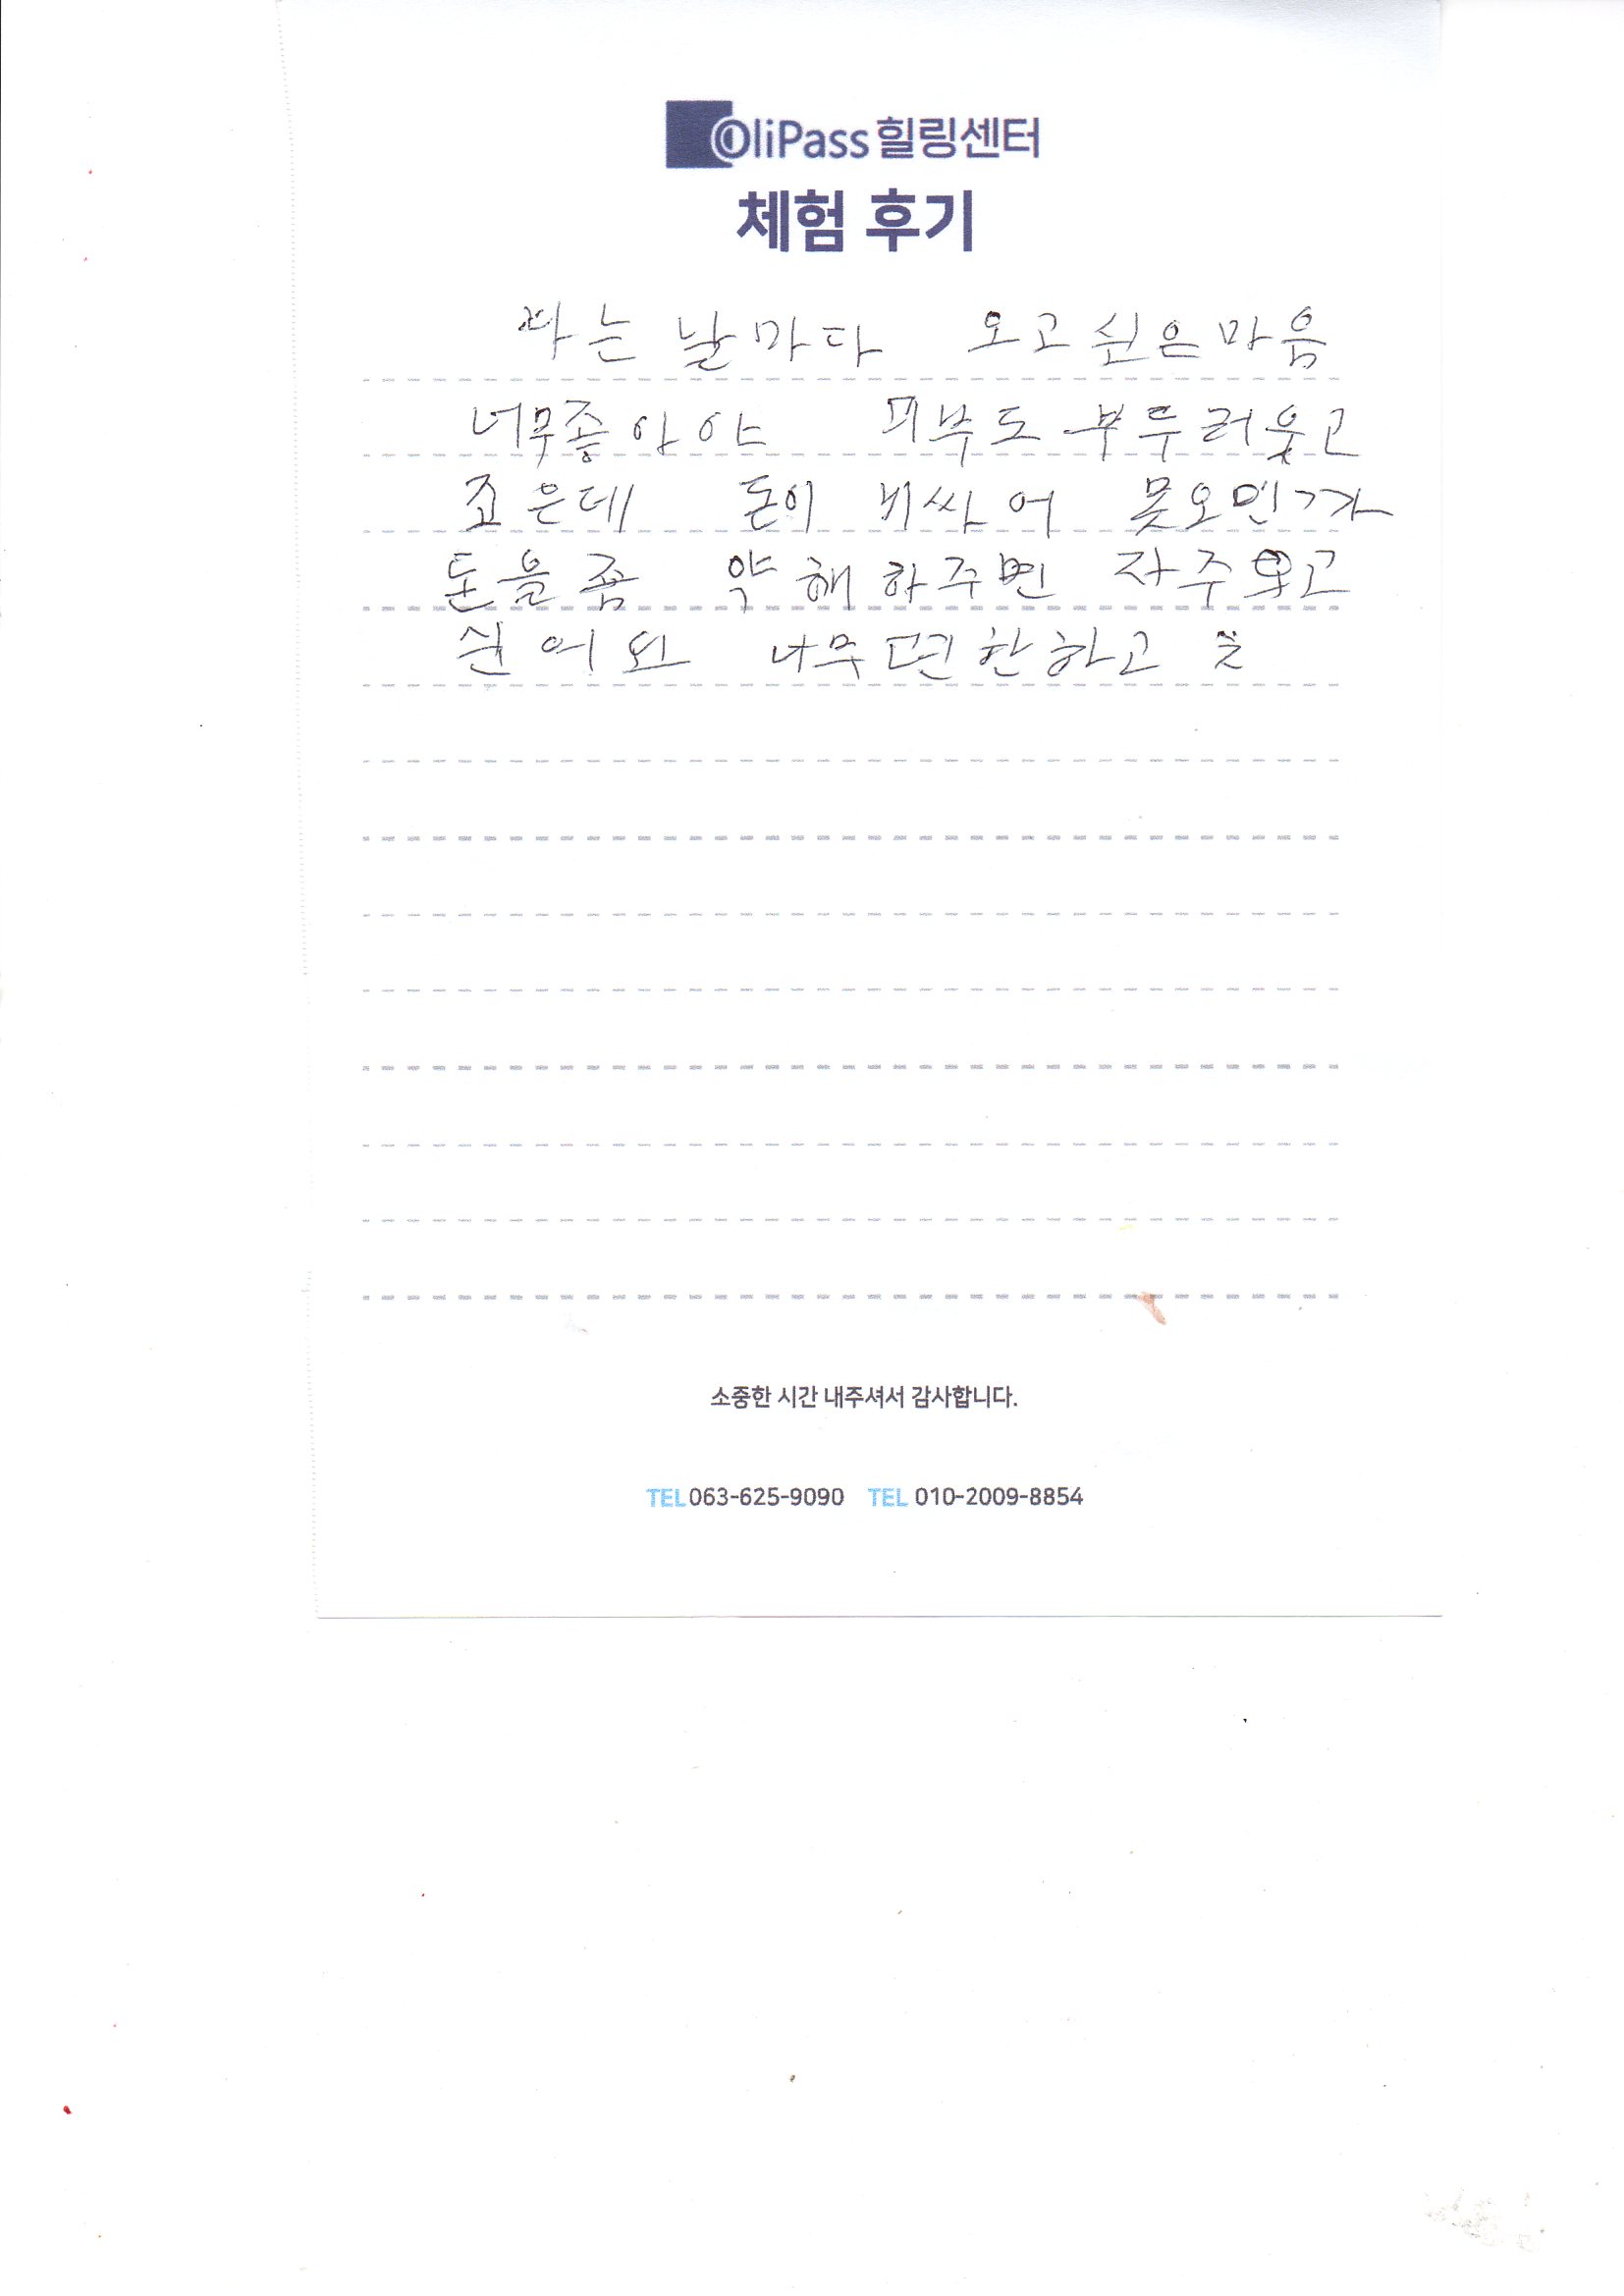 OliPass 힐링센터
체험 후기
나는 날마다 오고 쉰은 마음
너무좋아야 피부도 부두러웃고
죠은데 돈이 비싸어 못오민ㄱ가
돈을 좀 약해하주면 자주 오고
쉰어요 너무 편한하고
소중한 시간 내주셔서 감사합니다.
TEL 063-625-9090 TEL 010-2009-8854